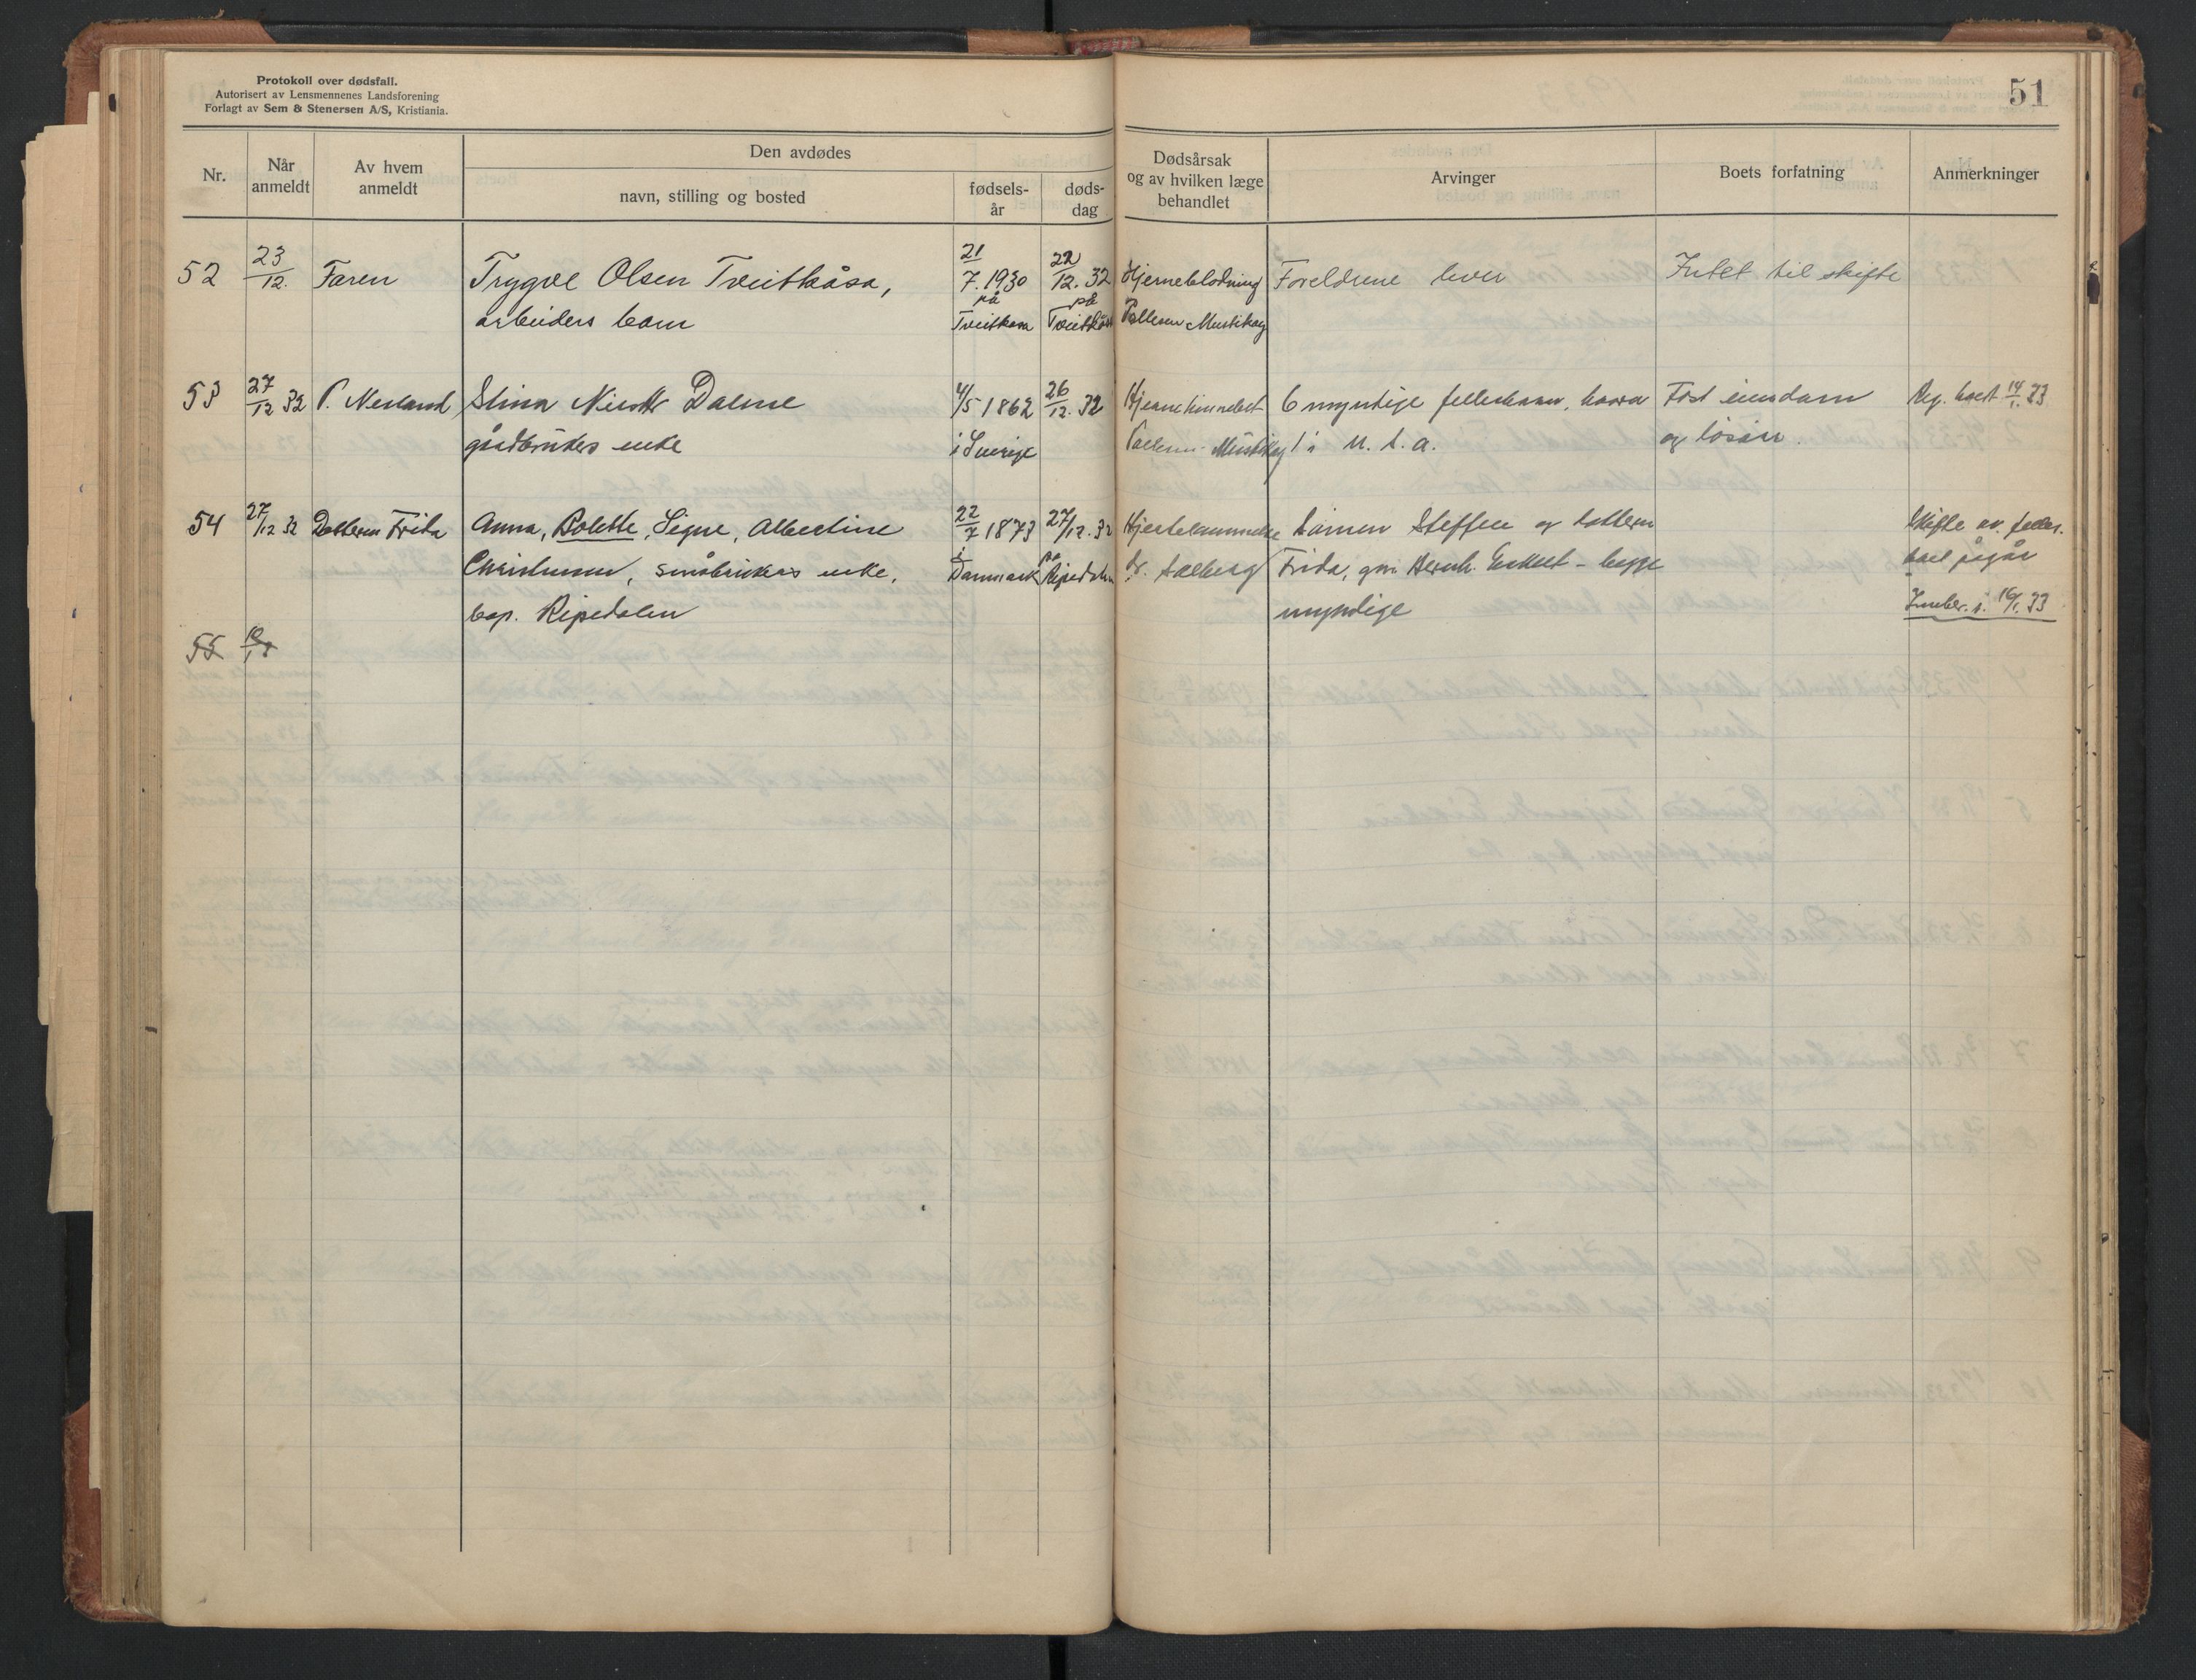 Protokoll over dødsfall.
Autorisert av Lensmennenes Landsforening
Forlagt av Sem & Stenersen A/S, Kristiania.
51
Nr.
Når anmeldt
Av hvem anmeldt
Den avdødes
navn, stilling og bosted
fødsels-år
døds-dag
Dødsårsak og av hvilken læge behandlet
Arvinger
Boets forfatning
Anmerkninger
52 23/12. Faren Trygve Olsen Tveitkåsa, 21/7.1930 22/12.32 Hjerneblødning Foreldrene lever Intet til skifte
arbeiders barn på Tveitkåsa på Tveitkåsa
53 27/12 32 Stina Dalene 4/5 1862 26/12.32 6 myndige fellesbarn, hvorav Fast eiendom Reg. boet 14/1.33
gårdbrukers enke i Sverige 1 i U. S. A. og løsøre.
54 27/12 32 Datteren Frida Anna, Bolette, Signe, Albertine 22/7 1873 27/12.32 Sønnen Steffen og datteren Skifte av felles-
Christensen, småbrukers enke, i Danmark på Ripedalen dr. Frida, gm. Bernh. - begge boet pågår
bop. Ripedalen myndige 16/1.33
55 10/1